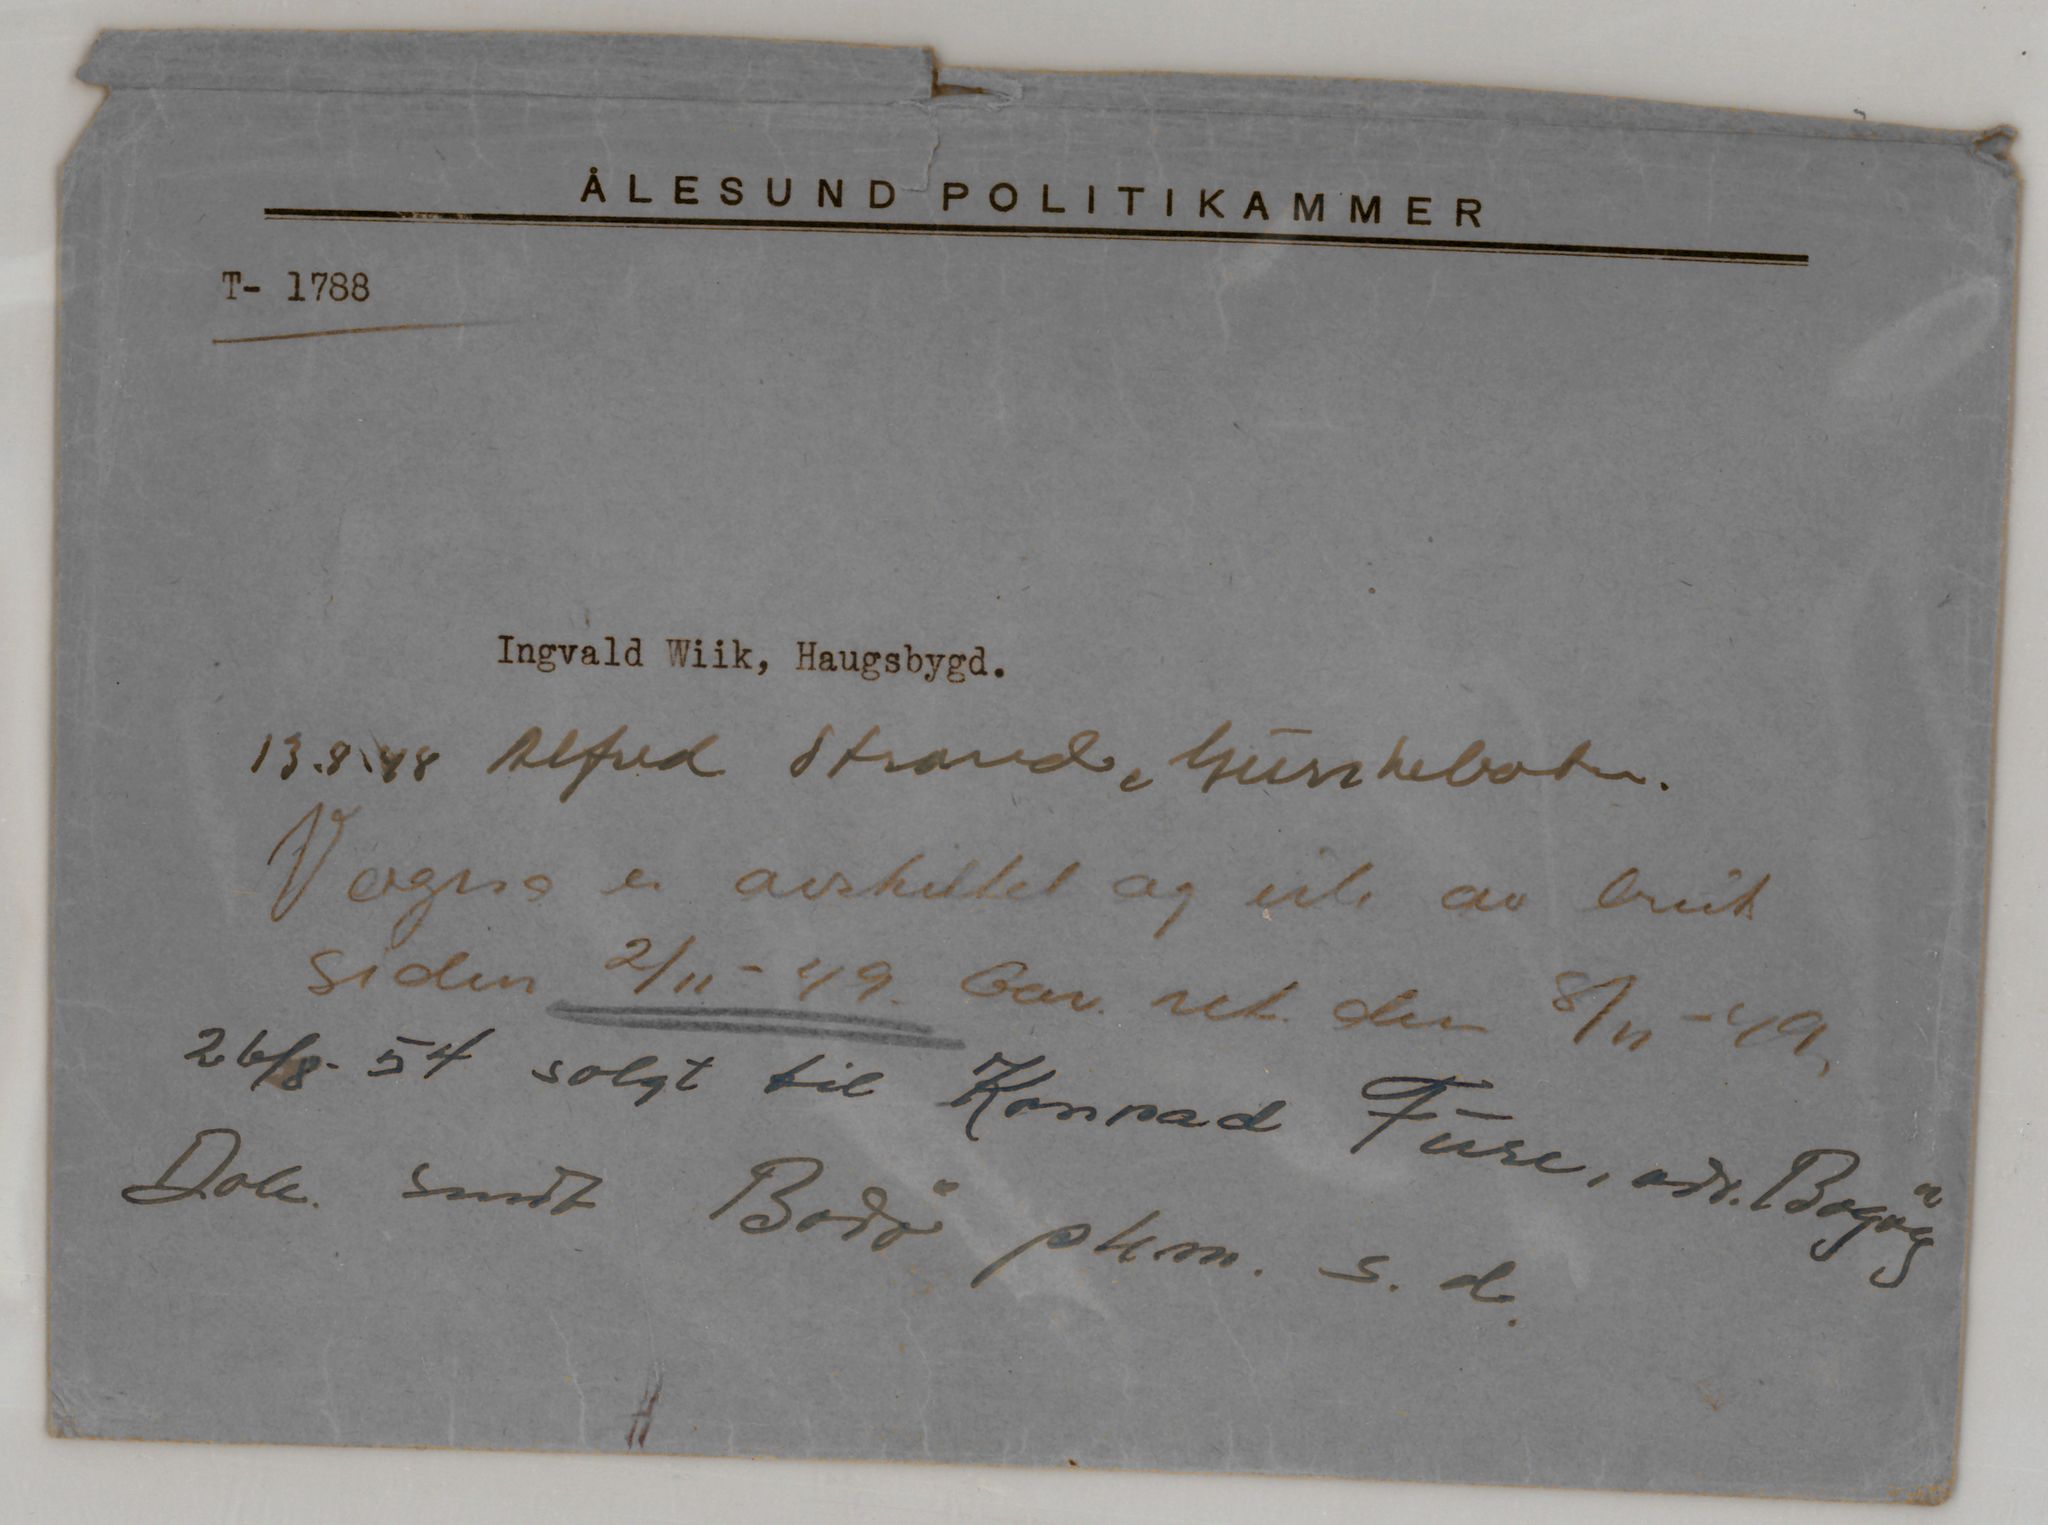 ÅLESUND POLITIKAMMER
T- 1788
Ingvald Wiik, Haugsbygd.
13.8.48 Alfred Strand, Gurskebotn.
Vogna er avskiltet og ute av bruk
siden 2/11-49. den 8/11-49.
26/8-54 solgt til Konrad Fure, adr. Bogøy
Dok. sendt Bodø pkm. s. d.